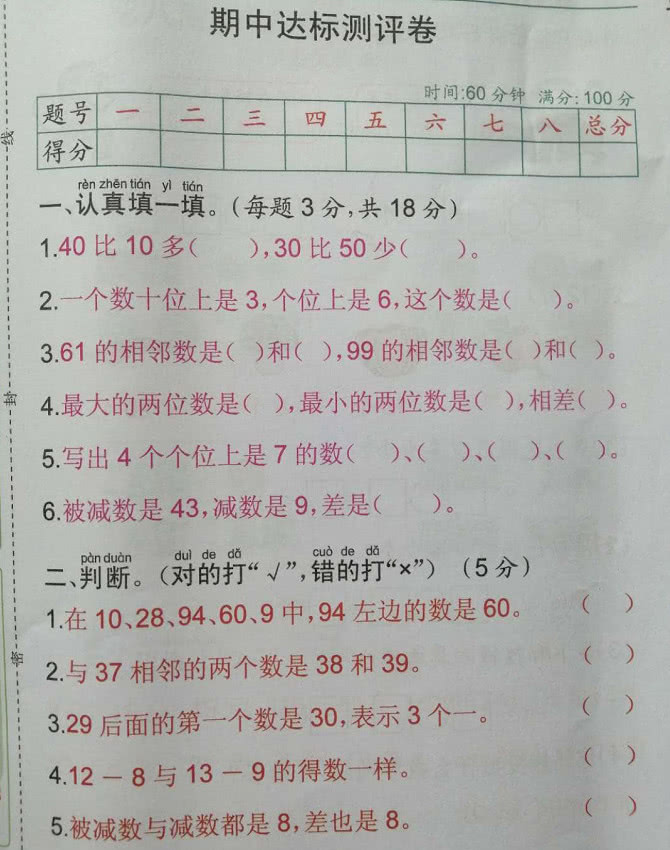 期中达标测评卷
时间:60分钟 满分:100分
题号 一 二 三 四 五 六 七 八 总分
得分
rèn zhēn tián yì tián
一、认真填一填。(每题3分,共18分)
1.40比10多( ),30比50少( )。
2.一个数十位上是3,个位上是6,这个数是( )。
3.61的相邻数是( )和( ),99的相邻数是( )和( )。
4.最大的两位数是( ),最小的两位数是( ),相差( )。
5.写出4个个位上是7的数( )、( )、( )、( )。
6.被减数是43,减数是9,差是( )。
pàn duàn duì de dǎ cuò de dǎ
二、判断。(对的打“√”,错的打“×”)(5分)
1.在10、28、94、60、9中,94左边的数是60。 ( )
2.与37相邻的两个数是38和39。 ( )
3.29后面的第一个数是30,表示3个一。 ( )
4.12－8与13－9的得数一样。 ( )
5.被减数与减数都是8,差也是8。 ( )
线
封
密